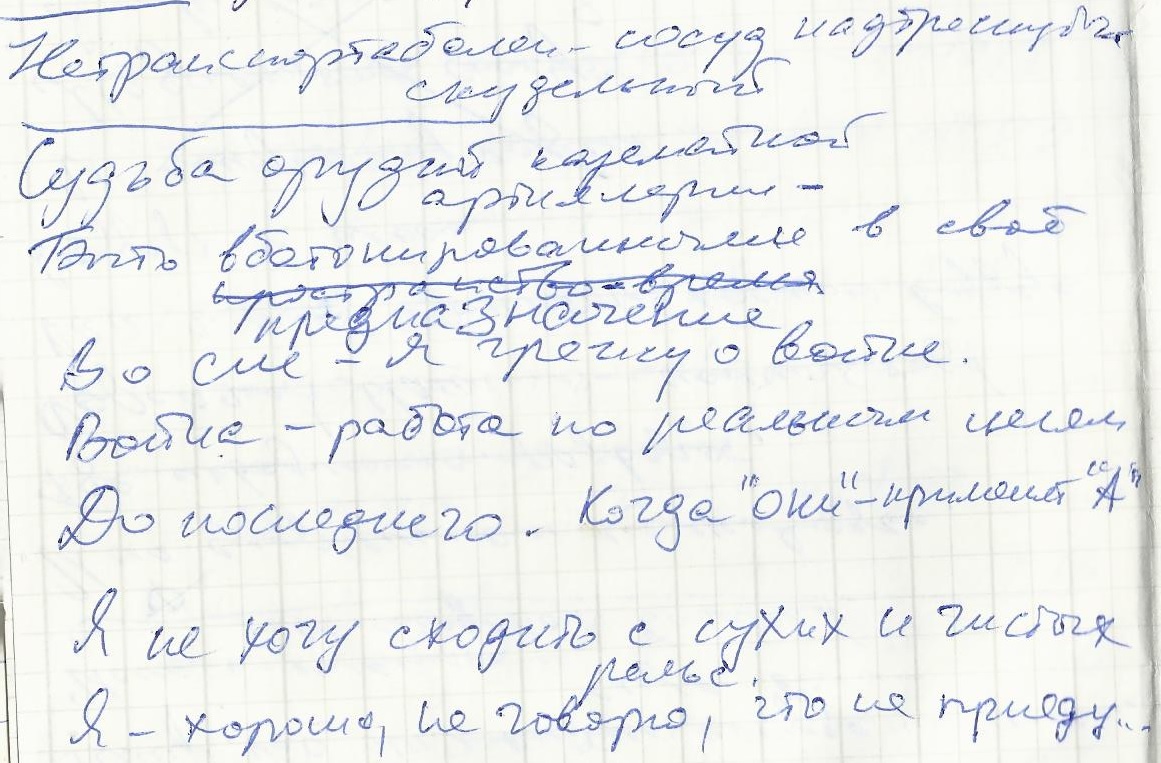 Нетранспортабелен - сосуд надтреснутый
скудельный
Судьба орудий казематной
артиллерии -
Быть вбетонированными в своё
пространство-время
предназначение
Во сне - я грежу о войне.
Война - работа по реальным целям
До последнего. Когда "они" - применят "А"
Я не хочу сходить с сухих и чистых
рельс.
Я - хорошо, не говорю, что не приеду...